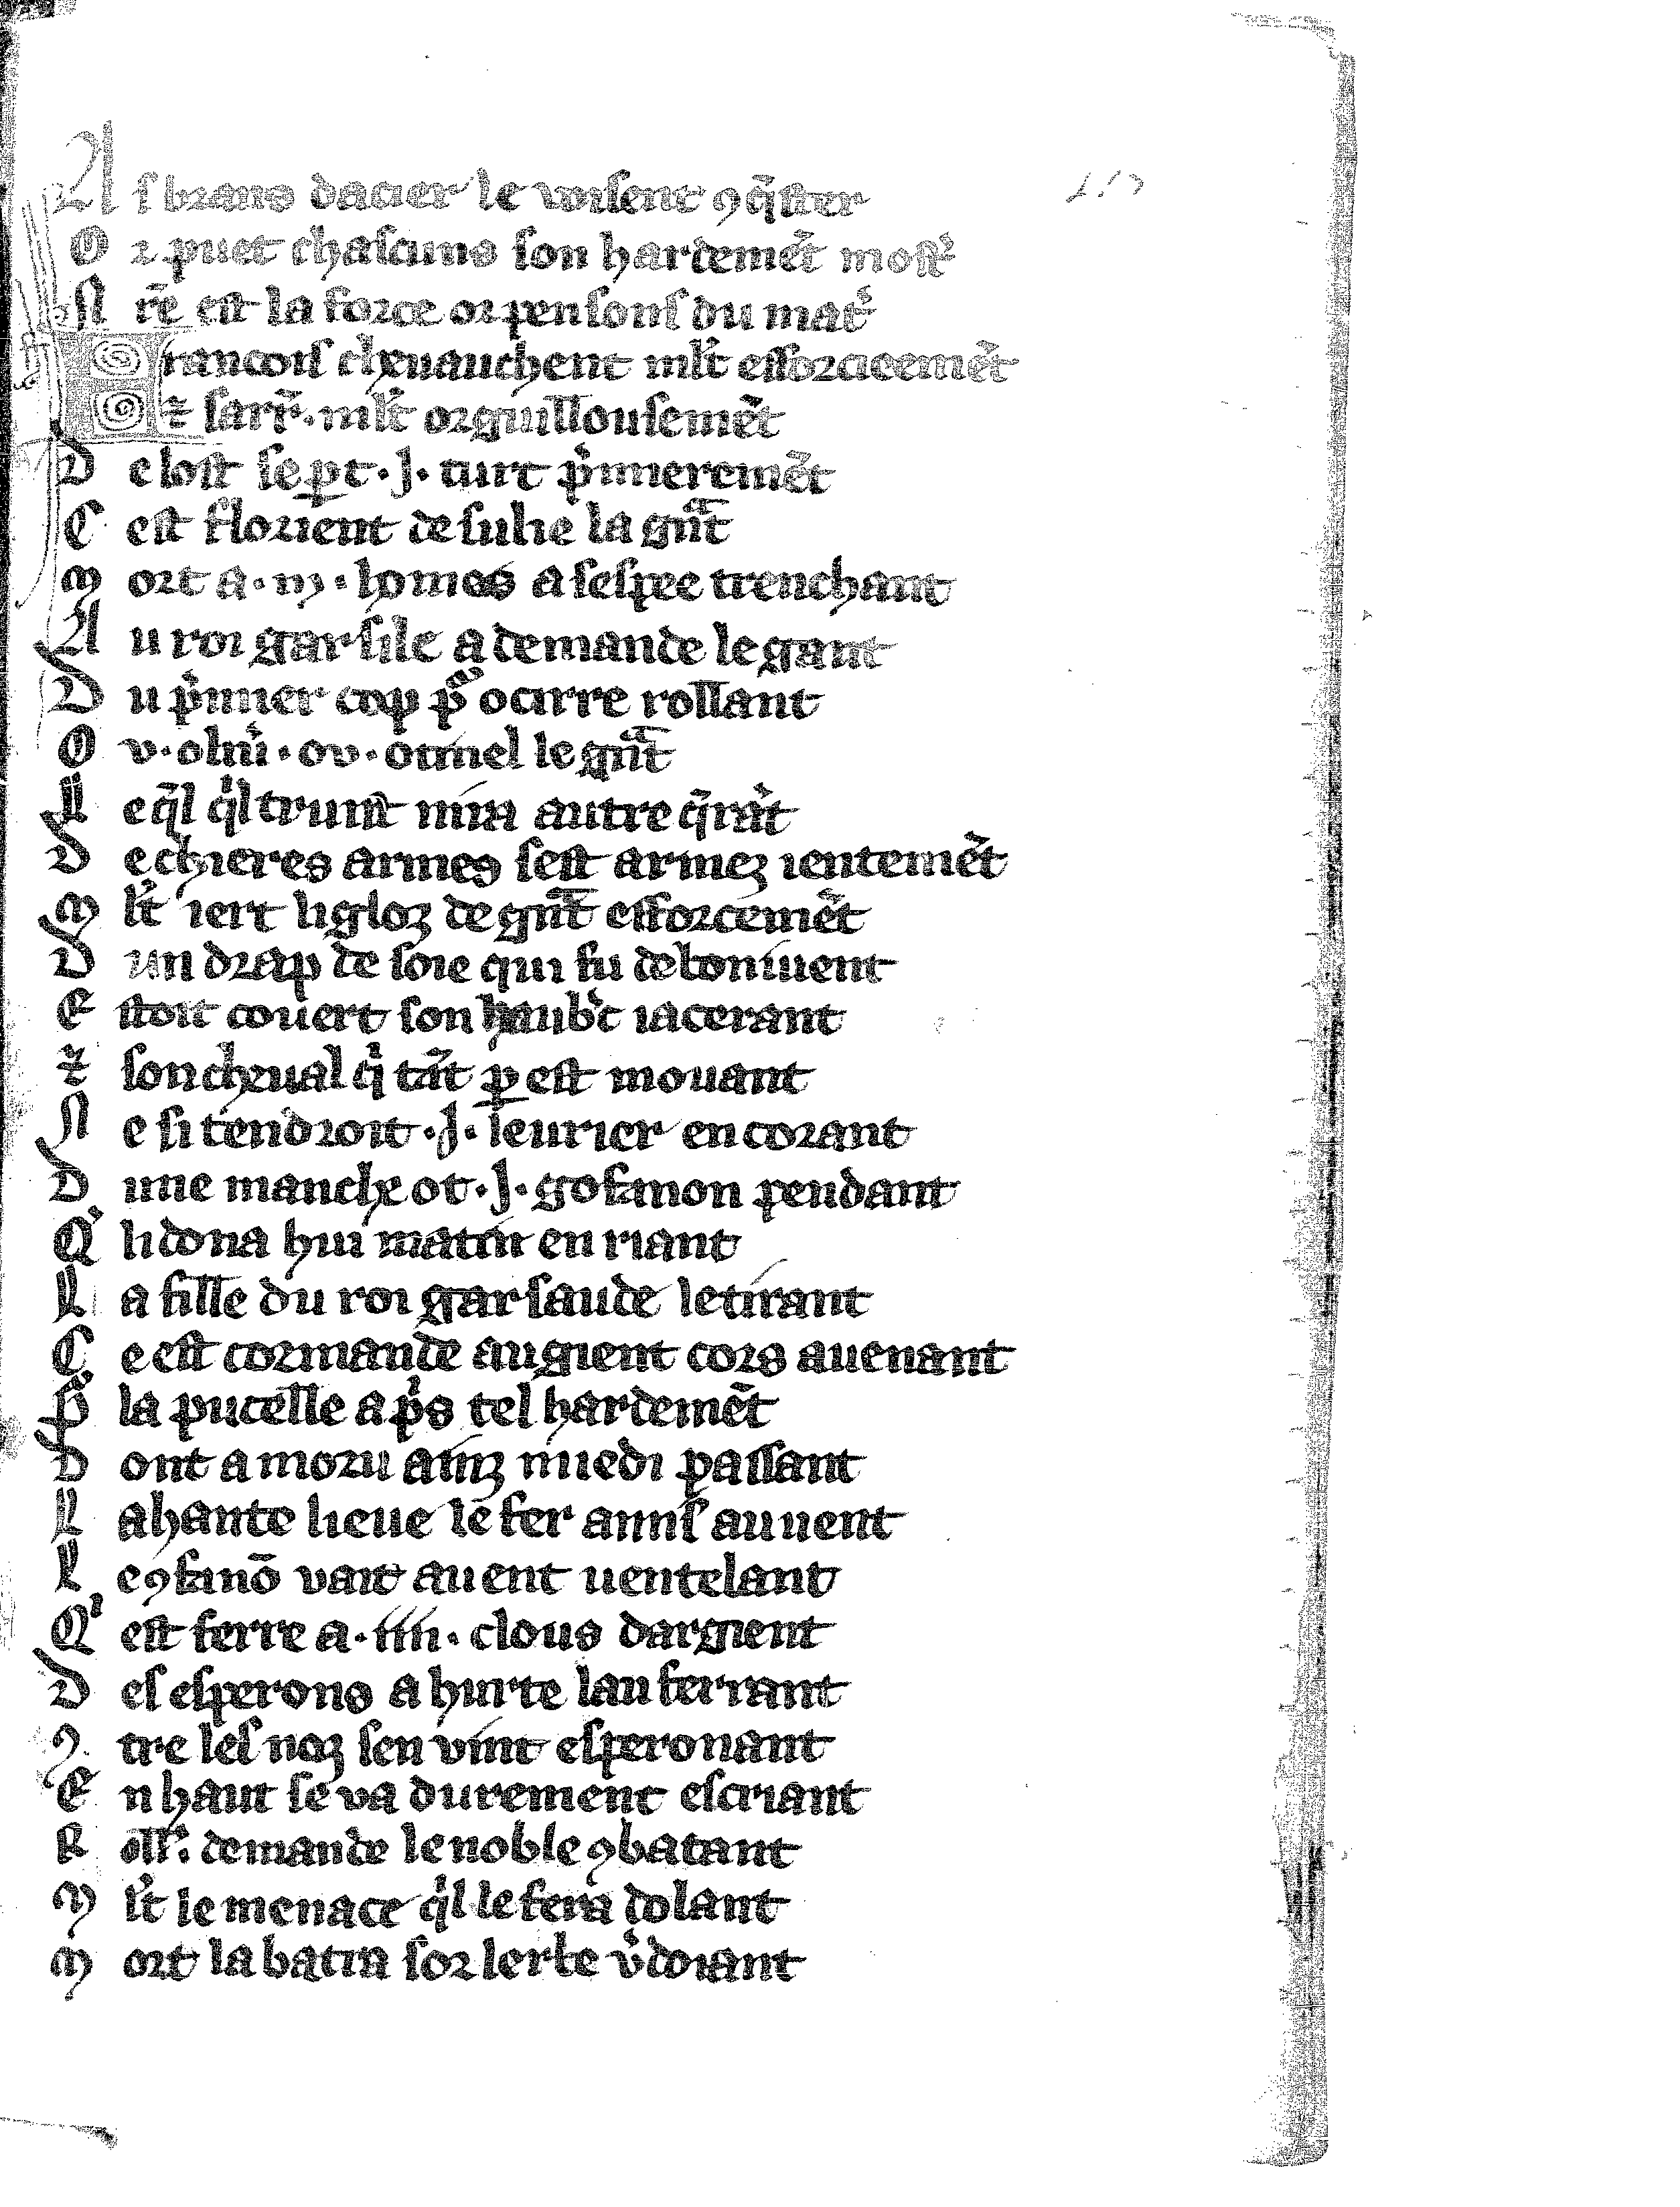 A s brans dacier le voisent ꝯq̃ster
O r puet chascuns son hardemẽt most᷑
N r̃e est la force or pensons du mat᷑
F rancois cheuauchent ml̃t efforcieemẽt
⁊ sarr̃. ml̃t orguillousemẽt
D e lost se ꝑt .J. turt p̾mieremẽt
C est florient de sulie la gñt
M ort a .m. homes a sespee trenchant
A u roi garsile a demande le gant
D u p̾mier cop pᵒ ocirre rollant
O v .oliũ. ov. otinel le gñt
L e q̃l q̾l truist mͥa autre q̃rãt
D e chieres armes sest armez ientemẽt
M l̃t iert li gloz de gñt efforcemẽt
D un drap de soie qui fu de boniuent
E stoit couert son haub᷑c iacerant
⁊ son cheual q̾ tãt ꝑ est mouant
N e si tendroit .J. leurier en corant
D une manche ot .J. gofanon pendant
Qͥ li dona hui matin en riant
L a fille du roi garsaude le tirant
C e est cormande au gient cors auenant
Pᵒ la pucelle a p̾s tel hardemẽt
D ont a moru ainz miedi passant
L a hante lieue le fer annis au uent
L e ꝯfanõ vait au ent uentelant
Qͥ est ferre a .iiii. clous dargient
D es esperons a hurte lau ferrant
ꝯ tre les noz sen vint esperonant
E n haut se va durement escriant
R oll̃. demande le noble ꝯbatant
M l̃t le menace q̾l le fera dolant
M ort labatra sor lerbe v᷑doiant